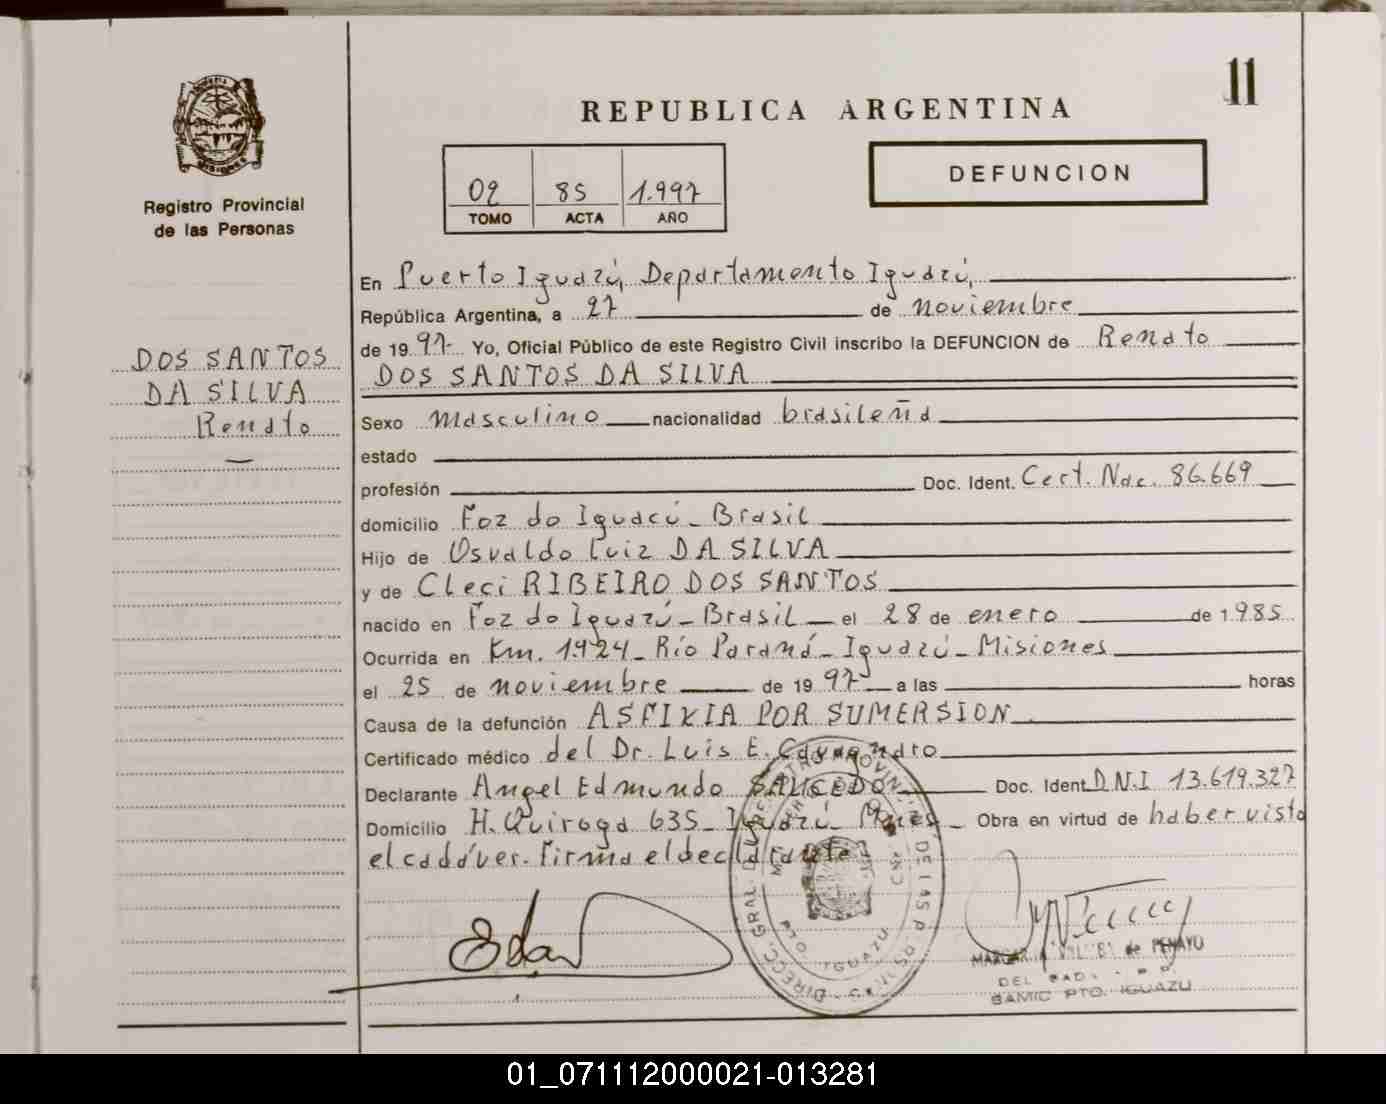 11
REPUBLICA ARGENTINA
DEFUNCION
02 85 1.997
TOMO ACTA AÑO
Registro Provincial
de las Personas
DOS SANTOS
DA SILVA
Renato
En Puerto Iguazú, Departamento Iguazú,
República Argentina, a 27 de noviembre
de 19 97 Yo, Oficial Público de este Registro Civil inscribo la DEFUNCION de Renato
DOS SANTOS DA SILVA
Sexo masculino nacionalidad brasileña
estado
profesión Doc. Ident. Cert. Nac. 86.669
domicilio Foz do Iguacú - Brasil
Hijo de Osvaldo Luiz DA SILVA
y de Cleci RIBEIRO DOS SANTOS
nacido en Foz do Iguazú - Brasil el 28 de enero de 1985
Ocurrida en Km. 1924 - Río Paraná - Iguazú - Misiones
el 25 de noviembre de 19 97 a las horas
Causa de la defunción ASFIXIA POR SUMERSION
Certificado médico del Dr. Luis E.
Declarante Angel Edmundo SAUCEDO Doc. Ident D.N.I 13.619.327
Domicilio H. Quiroga 635 - Iguazú - Mnes - Obra en virtud de haber visto
el cadáver. Firma el declarante
DIRECC. GRAL. DEL REGISTRO PROVINCIAL DE LAS P.
PTO. IGUAZU
de PENAYO
SAMIC PTO. IGUAZU
01_071112000021-013281